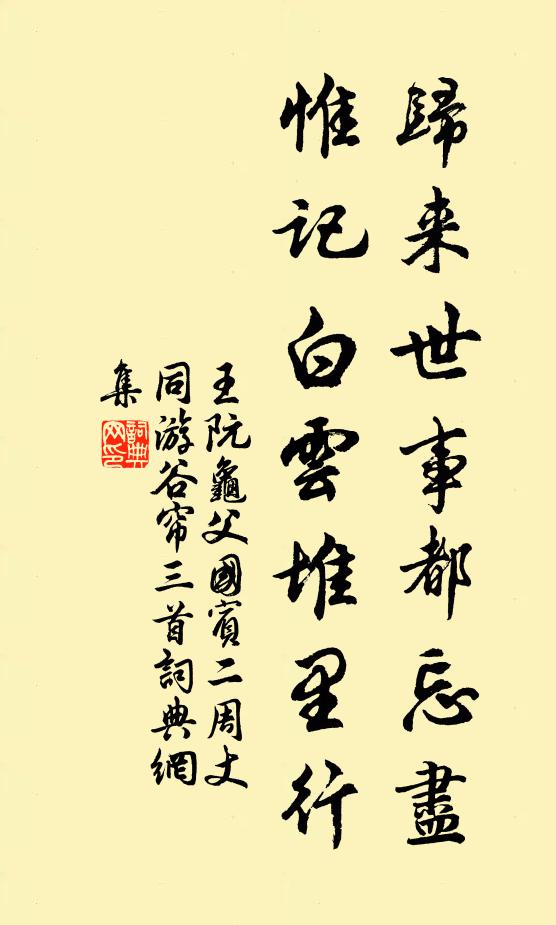 歸来世事都忘盡
惟记白雲堆里行
王阮龜父國賓二周丈
同游谷帘三首詞典網
集
詞典網印